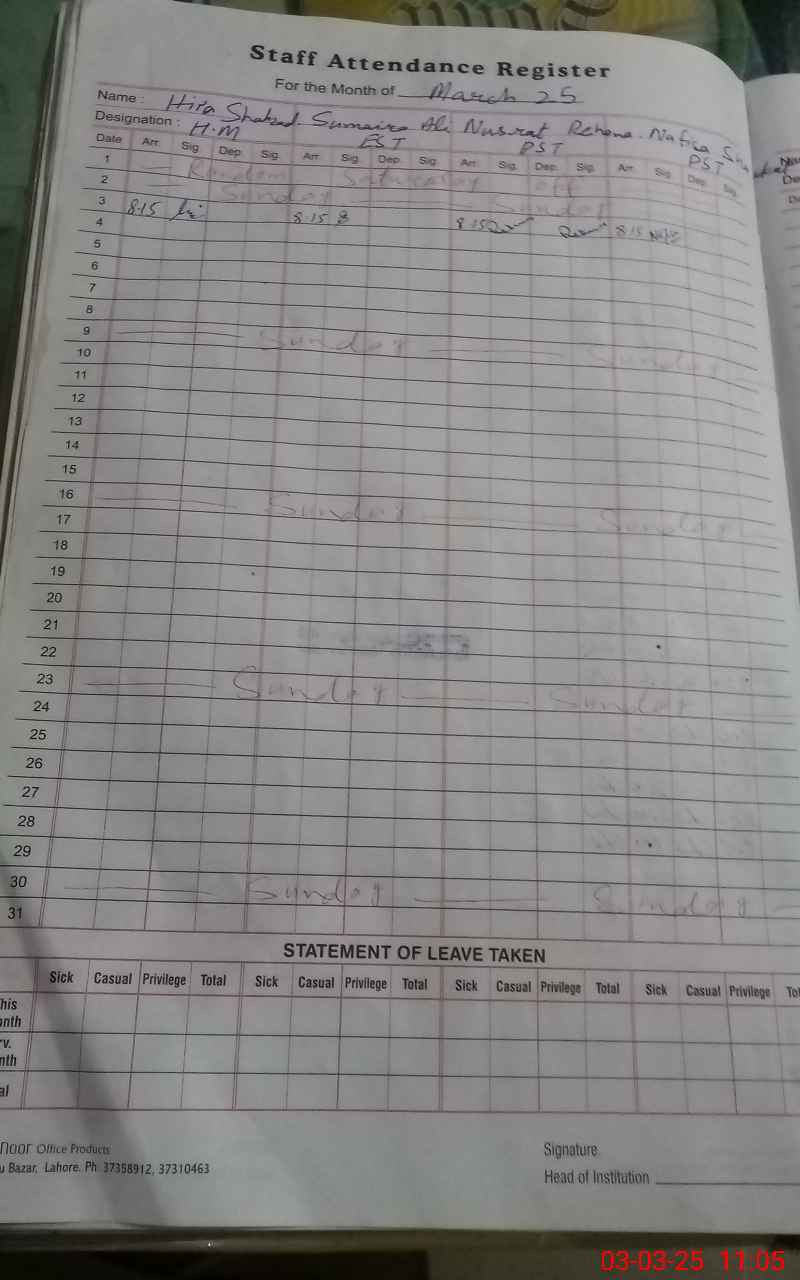 Staff Attendance Register
For the Month of March 25
Name : Hira Shahzad. Sumaira Ali Nusrat Rehana. Nafisa
Designation : H.M EST PST PST
Date Arr. Sig. Dep. Sig. Arr. Sig. Dep. Sig. Arr. Sig. Dep. Sig. Arr. Sig. Dep. Sig.
1 Random Saturday off
2 Sunday Sunday
3 8:15 8:15 8:15 8:15
4
5
6
7
8
9 Sunday Sunday
10
11
12
13
14
15
16 Sunday Sunday
17
18
19
20
21
22
23 Sunday Sunday
24
25
26
27
28
29
30 Sunday Sunday
31
STATEMENT OF LEAVE TAKEN
Sick Casual Privilege Total Sick Casual Privilege Total Sick Casual Privilege Total Sick Casual Privilege Tot
his
onth
rv.
nth
al
noor Office Products
u Bazar, Lahore. Ph: 37358912, 37310463
Signature
Head of Institution
03-03-25 11:05